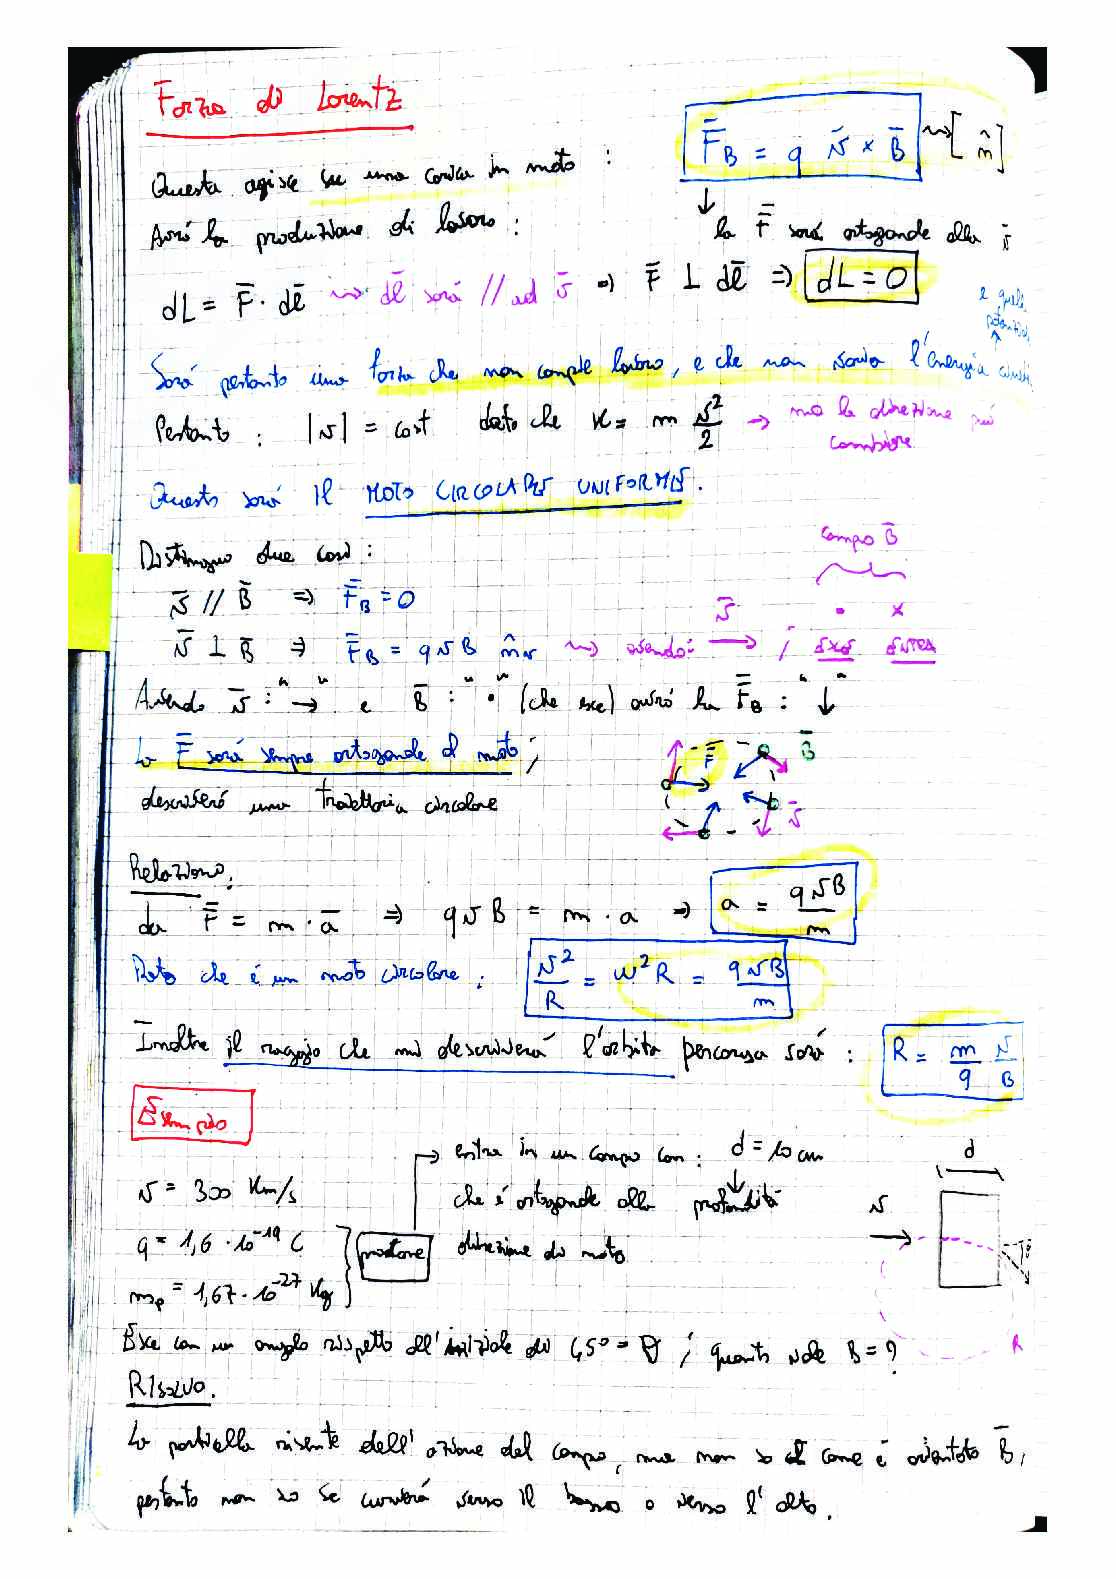 Forza di Lorentz
F̄_B = q v̄ × B̄ ⇝ [ n̂ ]
Questa agisce su una carica in moto :
↓
Avrò la produzione di lavoro :
la F̄ sarà ortogonale alla v̄
dL = F̄ · dl̄ ⇝ dl̄ sarà // ad v̄ ⇒ F̄ ⊥ dl̄ ⇒ dL = 0
e quella potenziale
Sarà pertanto una forza che non compie lavoro, e che non varia l'energia
Pertanto : |v| = cost dato che K = m v²/2 → ma la direzione può
cambiare
Questo sarà il MOTO CIRCOLARE UNIFORME.
campo B̄
Distinguo due casi :
v̄ // B̄ ⇒ F̄_B = 0
v̄ • ×
v̄ ⊥ B̄ ⇒ F̄_B = q v B n̂ ⇝ avendo: → , ESCE ENTRA
Avendo v̄ : " → " e B̄ : " • " (che esce) avrò la F̄_B : " ↓ "
La F̄ sarà sempre ortogonale al moto ;
F̄ B̄
descriverò una traiettoria circolare
v̄
Relazione.
da F̄ = m · ā ⇒ q v B = m · a ⇒ a = qvB/m
Dato che è un moto circolare : v²/R = ω²R = qvB/m
Inoltre il raggio che mi descriverà l'orbita percorsa sarà : R = m/q v/B
Esempio
→ entra in un campo con : d = 10 cm
d
v = 300 Km/s
che è ortogonale alla profondità
v
q = 1,6 · 10⁻¹⁹ C
protone
direzione di moto
m_p = 1,67 · 10⁻²⁷ Kg
R
Esce con un angolo rispetto all'iniziale di 45° = θ ; quanto vale B = ?
Risolvo.
La particella risente dell'azione del campo, ma non so come è orientato B̄,
pertanto non so se curverà verso il basso o verso l'alto.